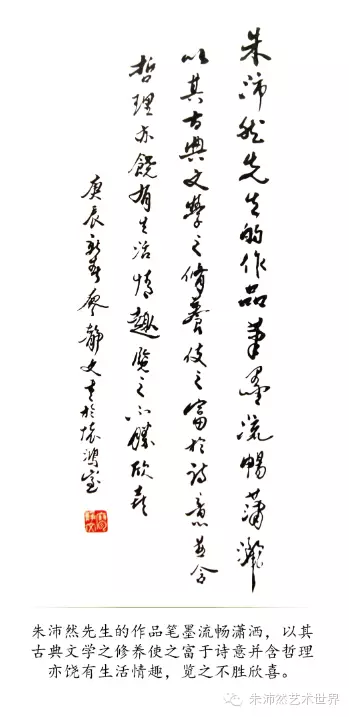 朱沛然先生的作品筆墨流暢瀟灑
以其古典文學之脩養使之富於詩意並含
哲理亦饒有生活情趣覽之不勝欣喜
庚辰新春廖靜文書於懷鴻室
朱沛然先生的作品笔墨流畅潇洒，以其
古典文学之修养使之富于诗意并含哲理
亦饶有生活情趣，览之不胜欣喜。
朱沛然艺术世界